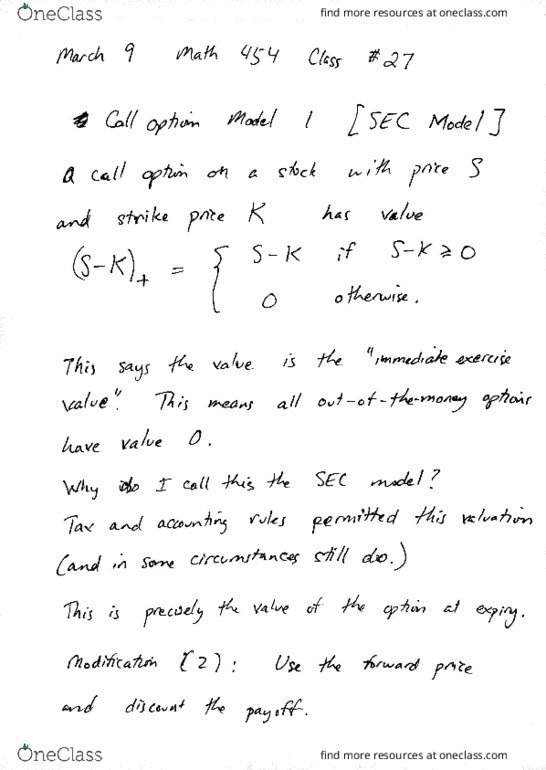 OneClass
find more resources at oneclass.com
March 9 Math 454 Class #27
Call option Model 1 [SEC Model]
a call option on a stock with price S
and strike price K has value
(S-K)₊ = { S-K if S-K ≥ 0
0 otherwise.
This says the value is the "immediate exercise
value". This means all out-of-the-money options
have value 0.
Why do I call this the SEC model?
Tax and accounting rules permitted this valuation
(and in some circumstances still do.)
This is precisely the value of the option at expiry.
Modification (2): Use the forward price
and discount the payoff.
OneClass
find more resources at oneclass.com